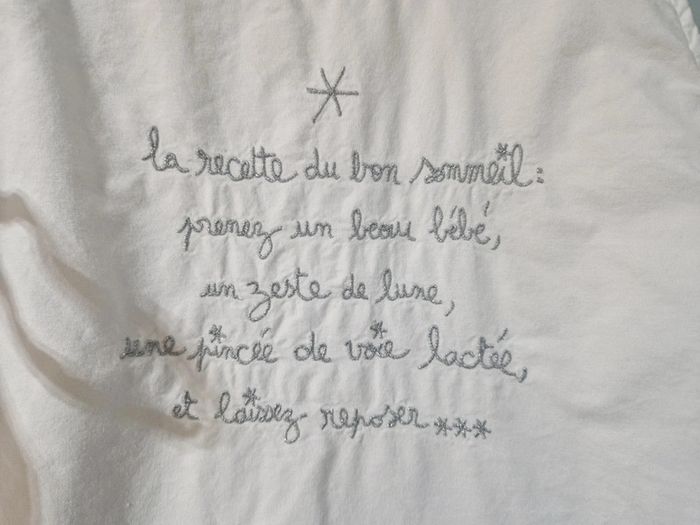 la recette du bon sommeil:
prenez un beau bébé,
un zeste de lune,
une pincée de voie lactée,
et laissez reposer***